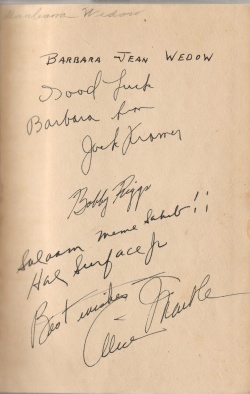 Barbara Wedow
BARBARA JEAN WEDOW
Good Luck
Barbara from
Jack Kramer
Bobby Riggs
Salaam meme Sahib!!
Hal Surface Jr
Best wishes
Alice Marble